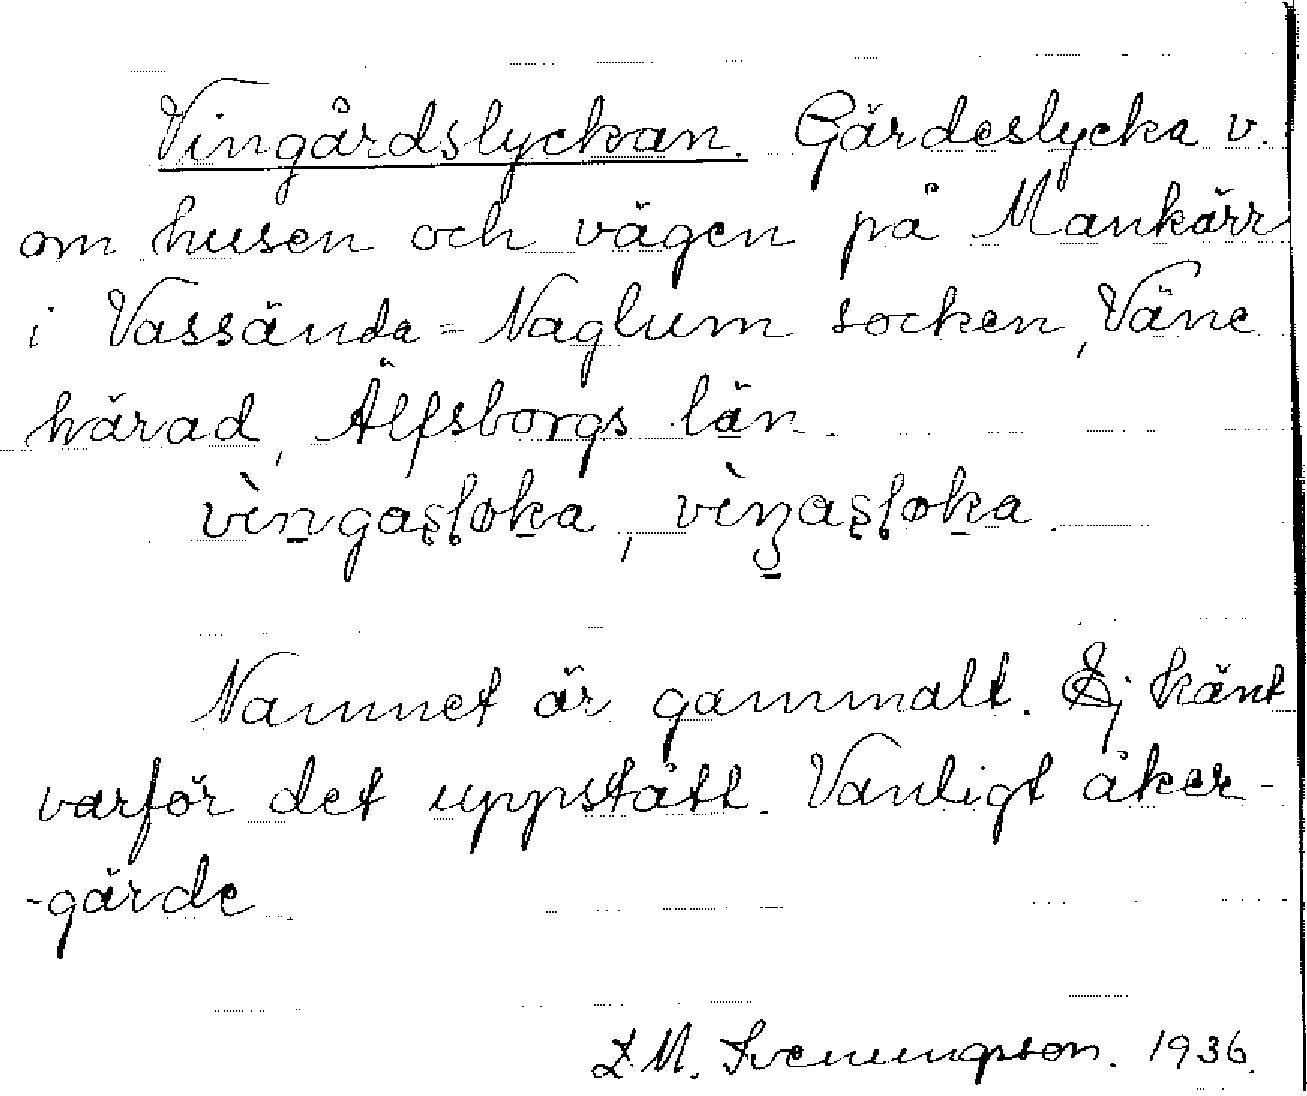 Vingårdslyckan. Gärdeslycka v.
om husen och vägen på Mankärr
i Vassända-Naglum socken, Väne
härad, Älfsborgs län.
Namnet är gammalt. Ej känt
varför det uppstått. Vanligt åker-
-gärde
1936.